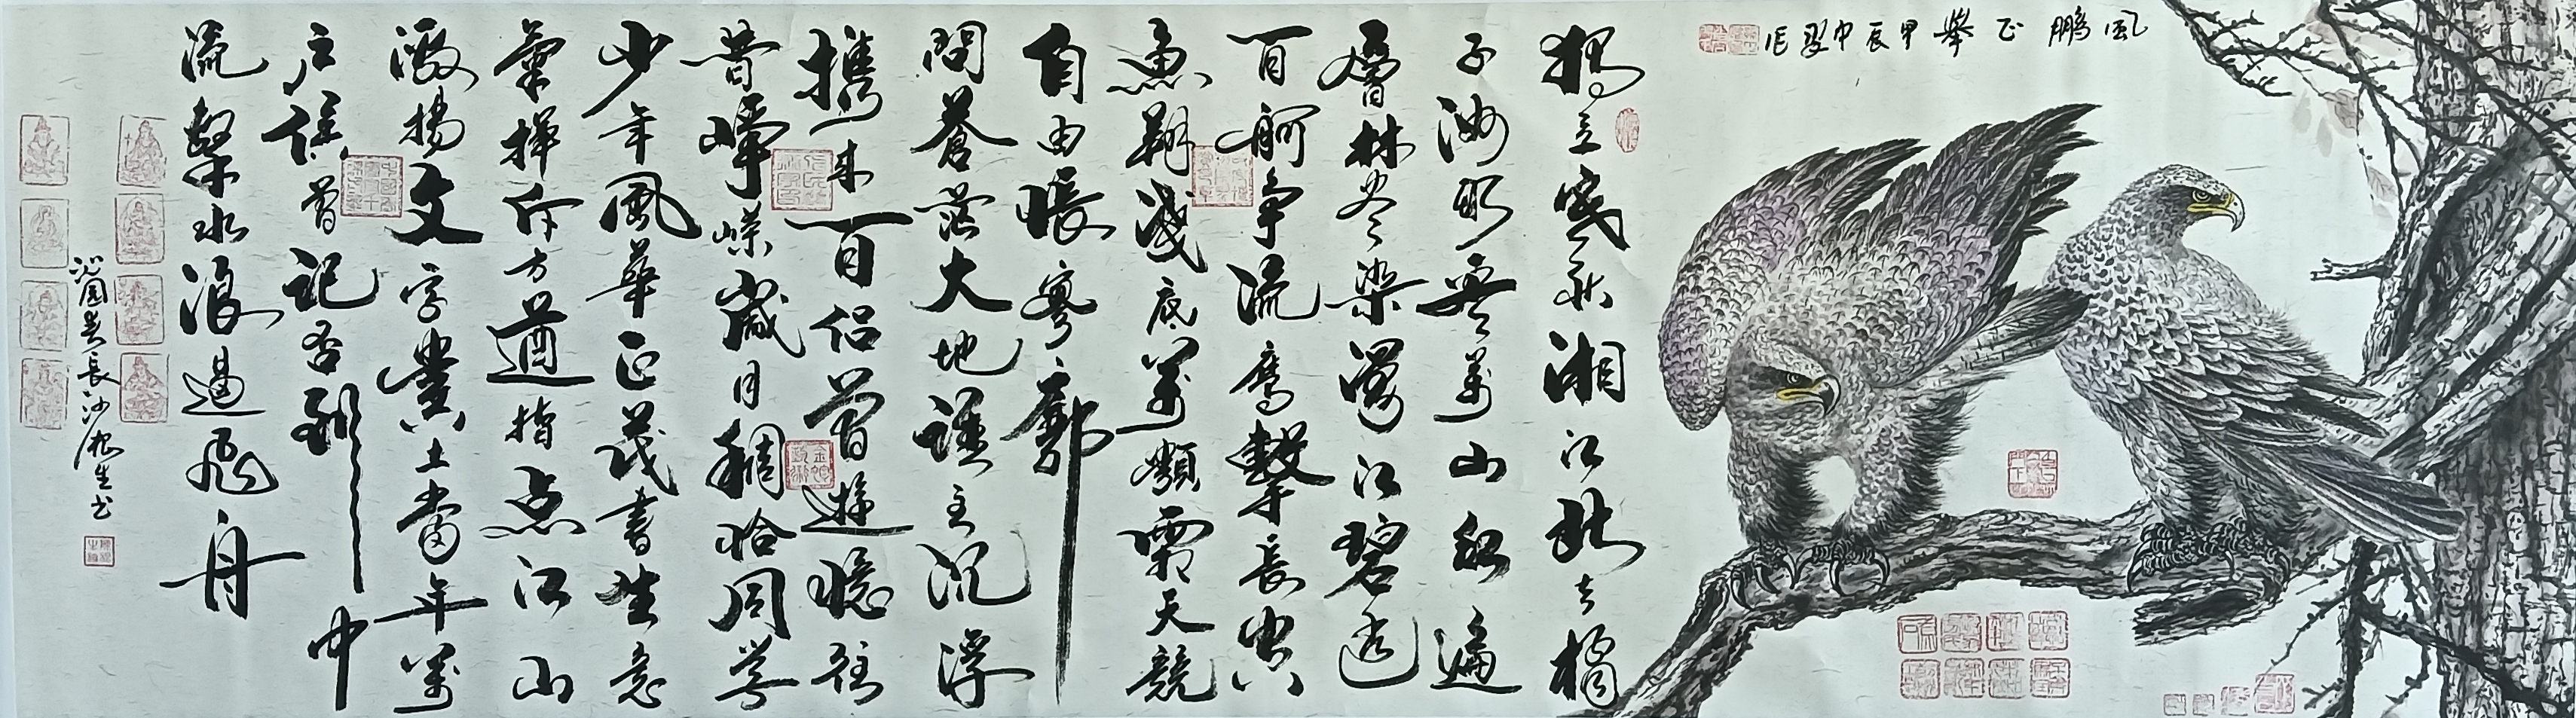 風鵬正舉 甲辰中夏作
獨立寒秋湘江北去橘
子洲頭看萬山紅遍
層林尽染漫江碧透
百舸争流鷹擊長空
魚翔淺底萬類霜天競
自由悵寥廓
問蒼茫大地誰主沉浮
携来百侣曾遊憶往
昔崢嶸歲月稠恰同學
少年風華正茂書生意
氣揮斥方遒指点江山
激揚文字糞土當年萬
户侯曾記否到中
流擊水浪遏飛舟
沁園春長沙 生书